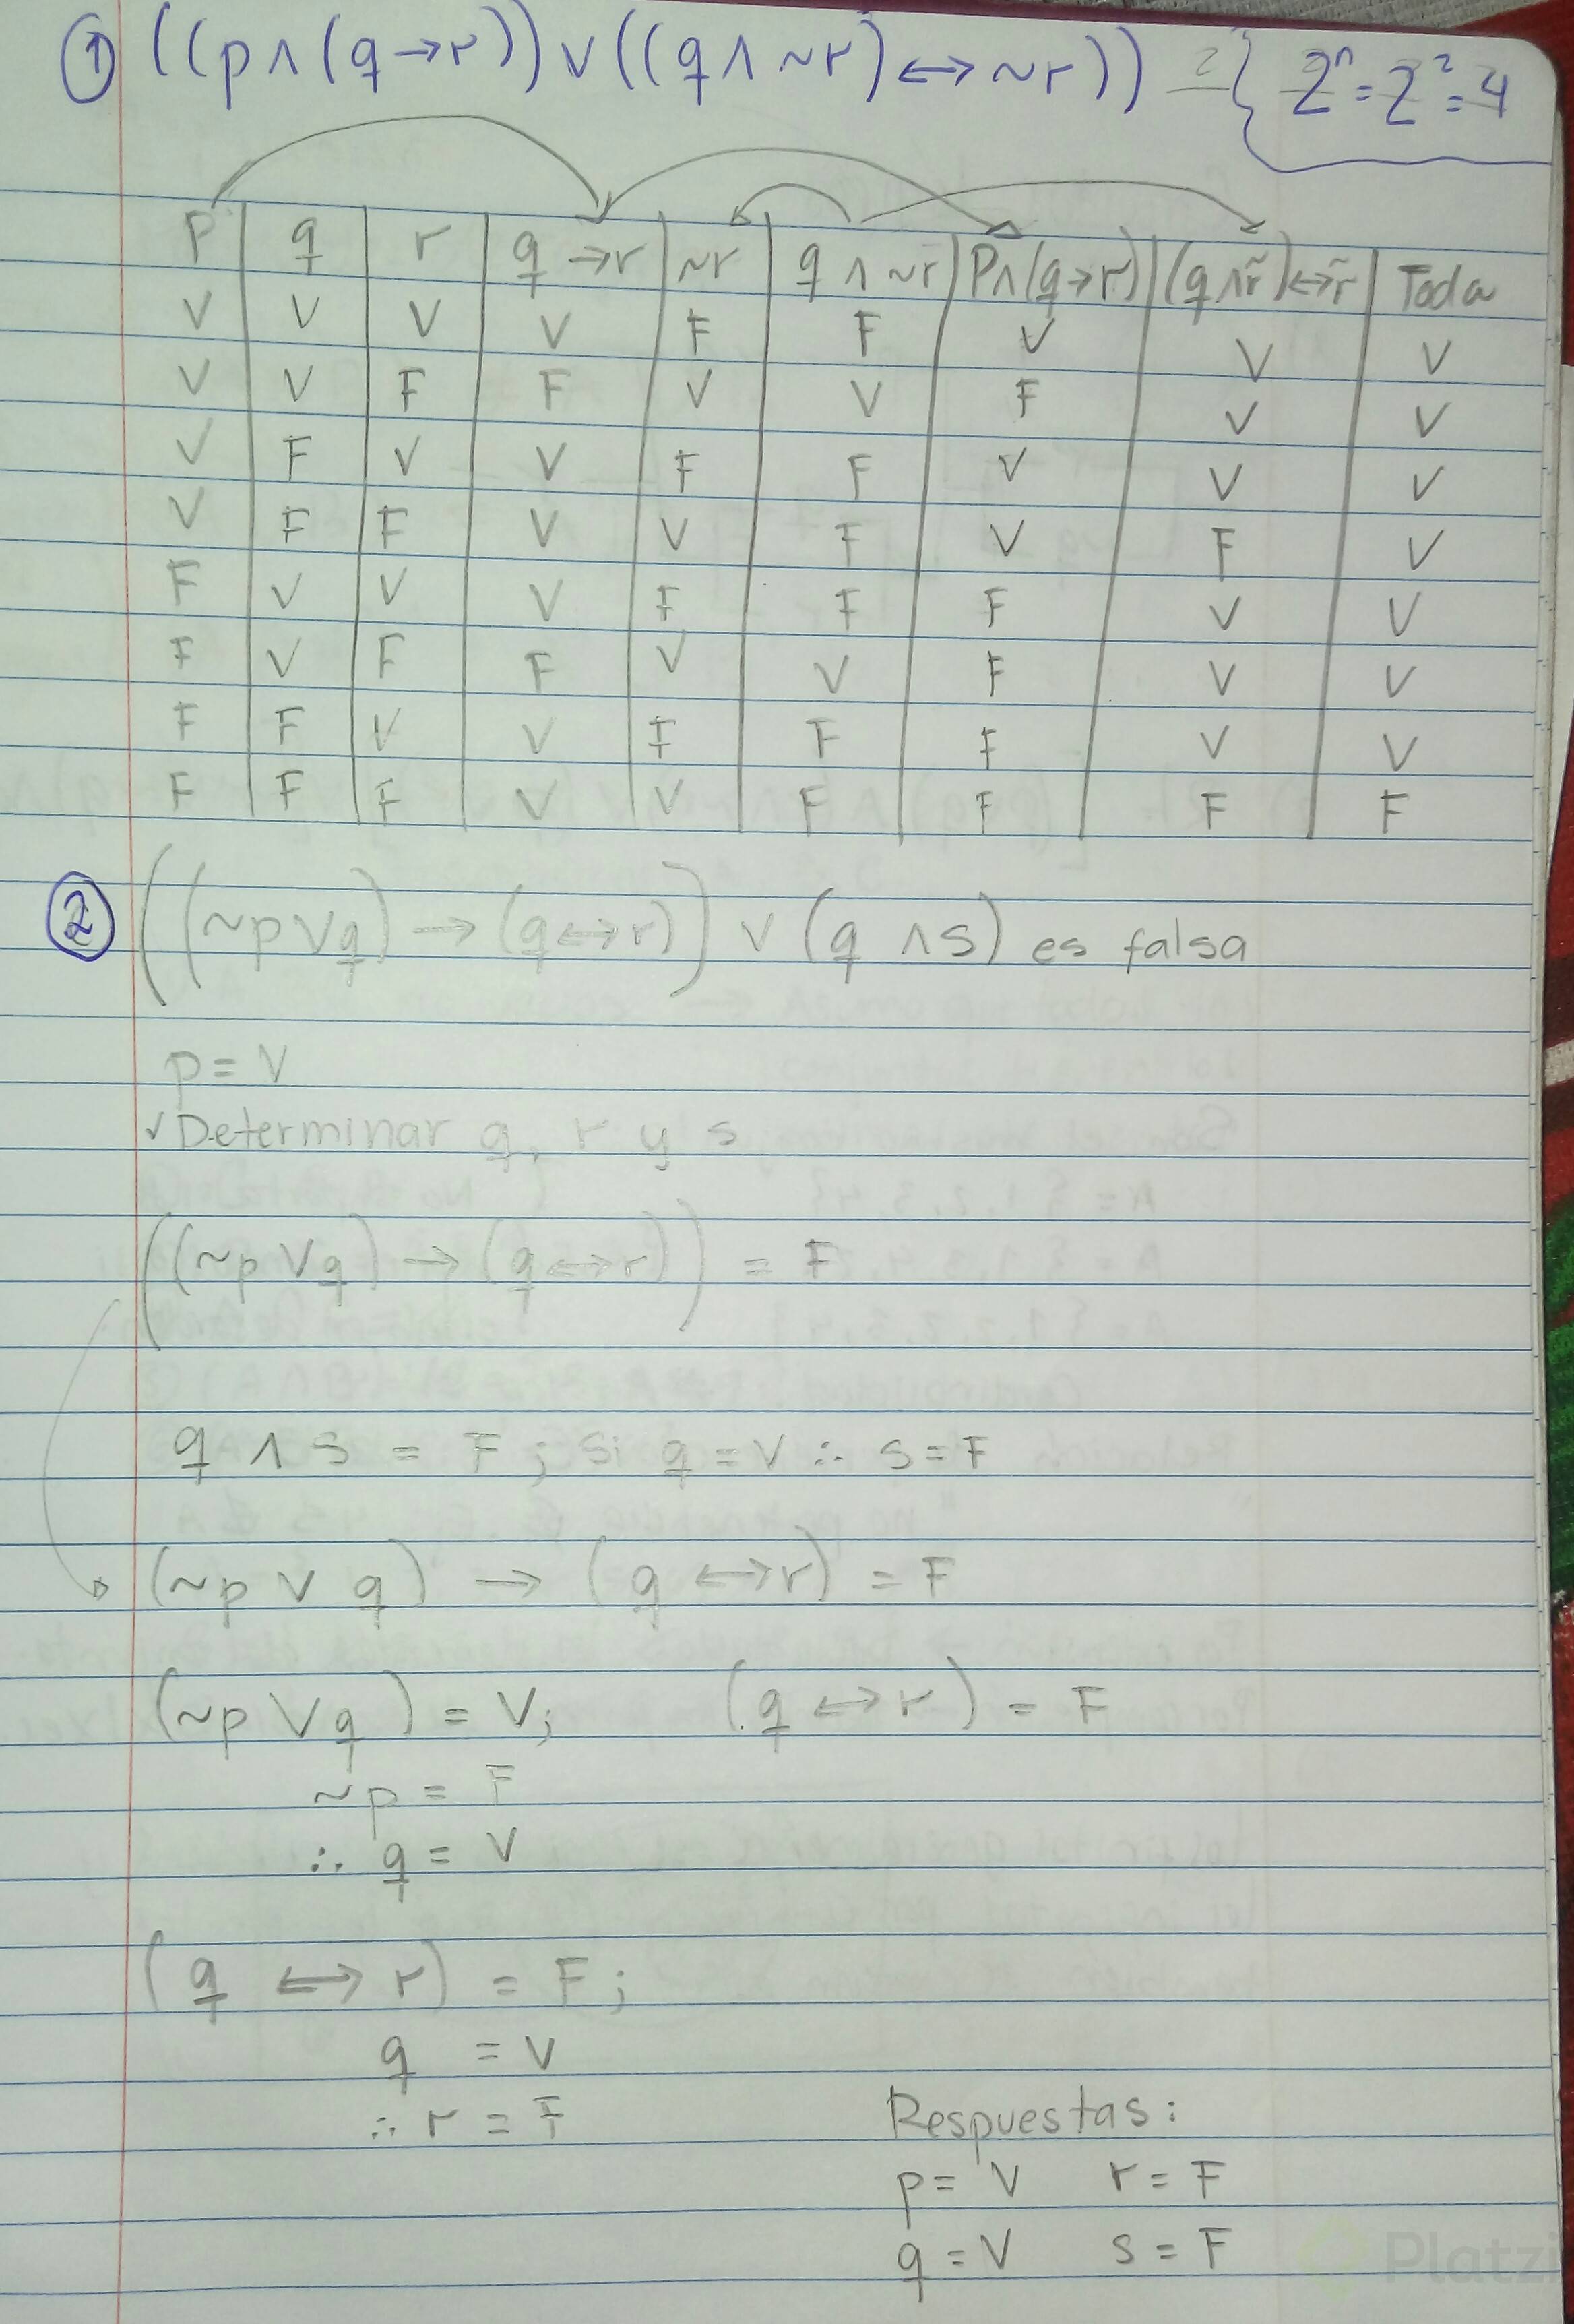 ① ((p∧(q→r))∨((q∧~r)↔~r)) { 2ⁿ=2²=4
P q r q→r ~r q∧~r P∧(q→r) (q∧~r)↔~r Toda
V V V V F F V V V
V V F F V V F V V
V F V V F F V V V
V F F V V F V F V
F V V V F F F V V
F V F F V V F V V
F F V V F F F V V
F F F V V F F F F
② ((~p∨q)→(q↔r))∨(q∧s) es falsa
p=V
✓Determinar q, r y s
((~p∨q)→(q↔r)) = F
q∧s = F; si q=V ∴ s=F
(~p∨q)→(q↔r) = F
(~p∨q) = V; (q↔r) = F
~p = F
∴ q = V
(q↔r) = F;
q = V
∴ r = F
Respuestas:
p= V r= F
q=V s=F
Platzi